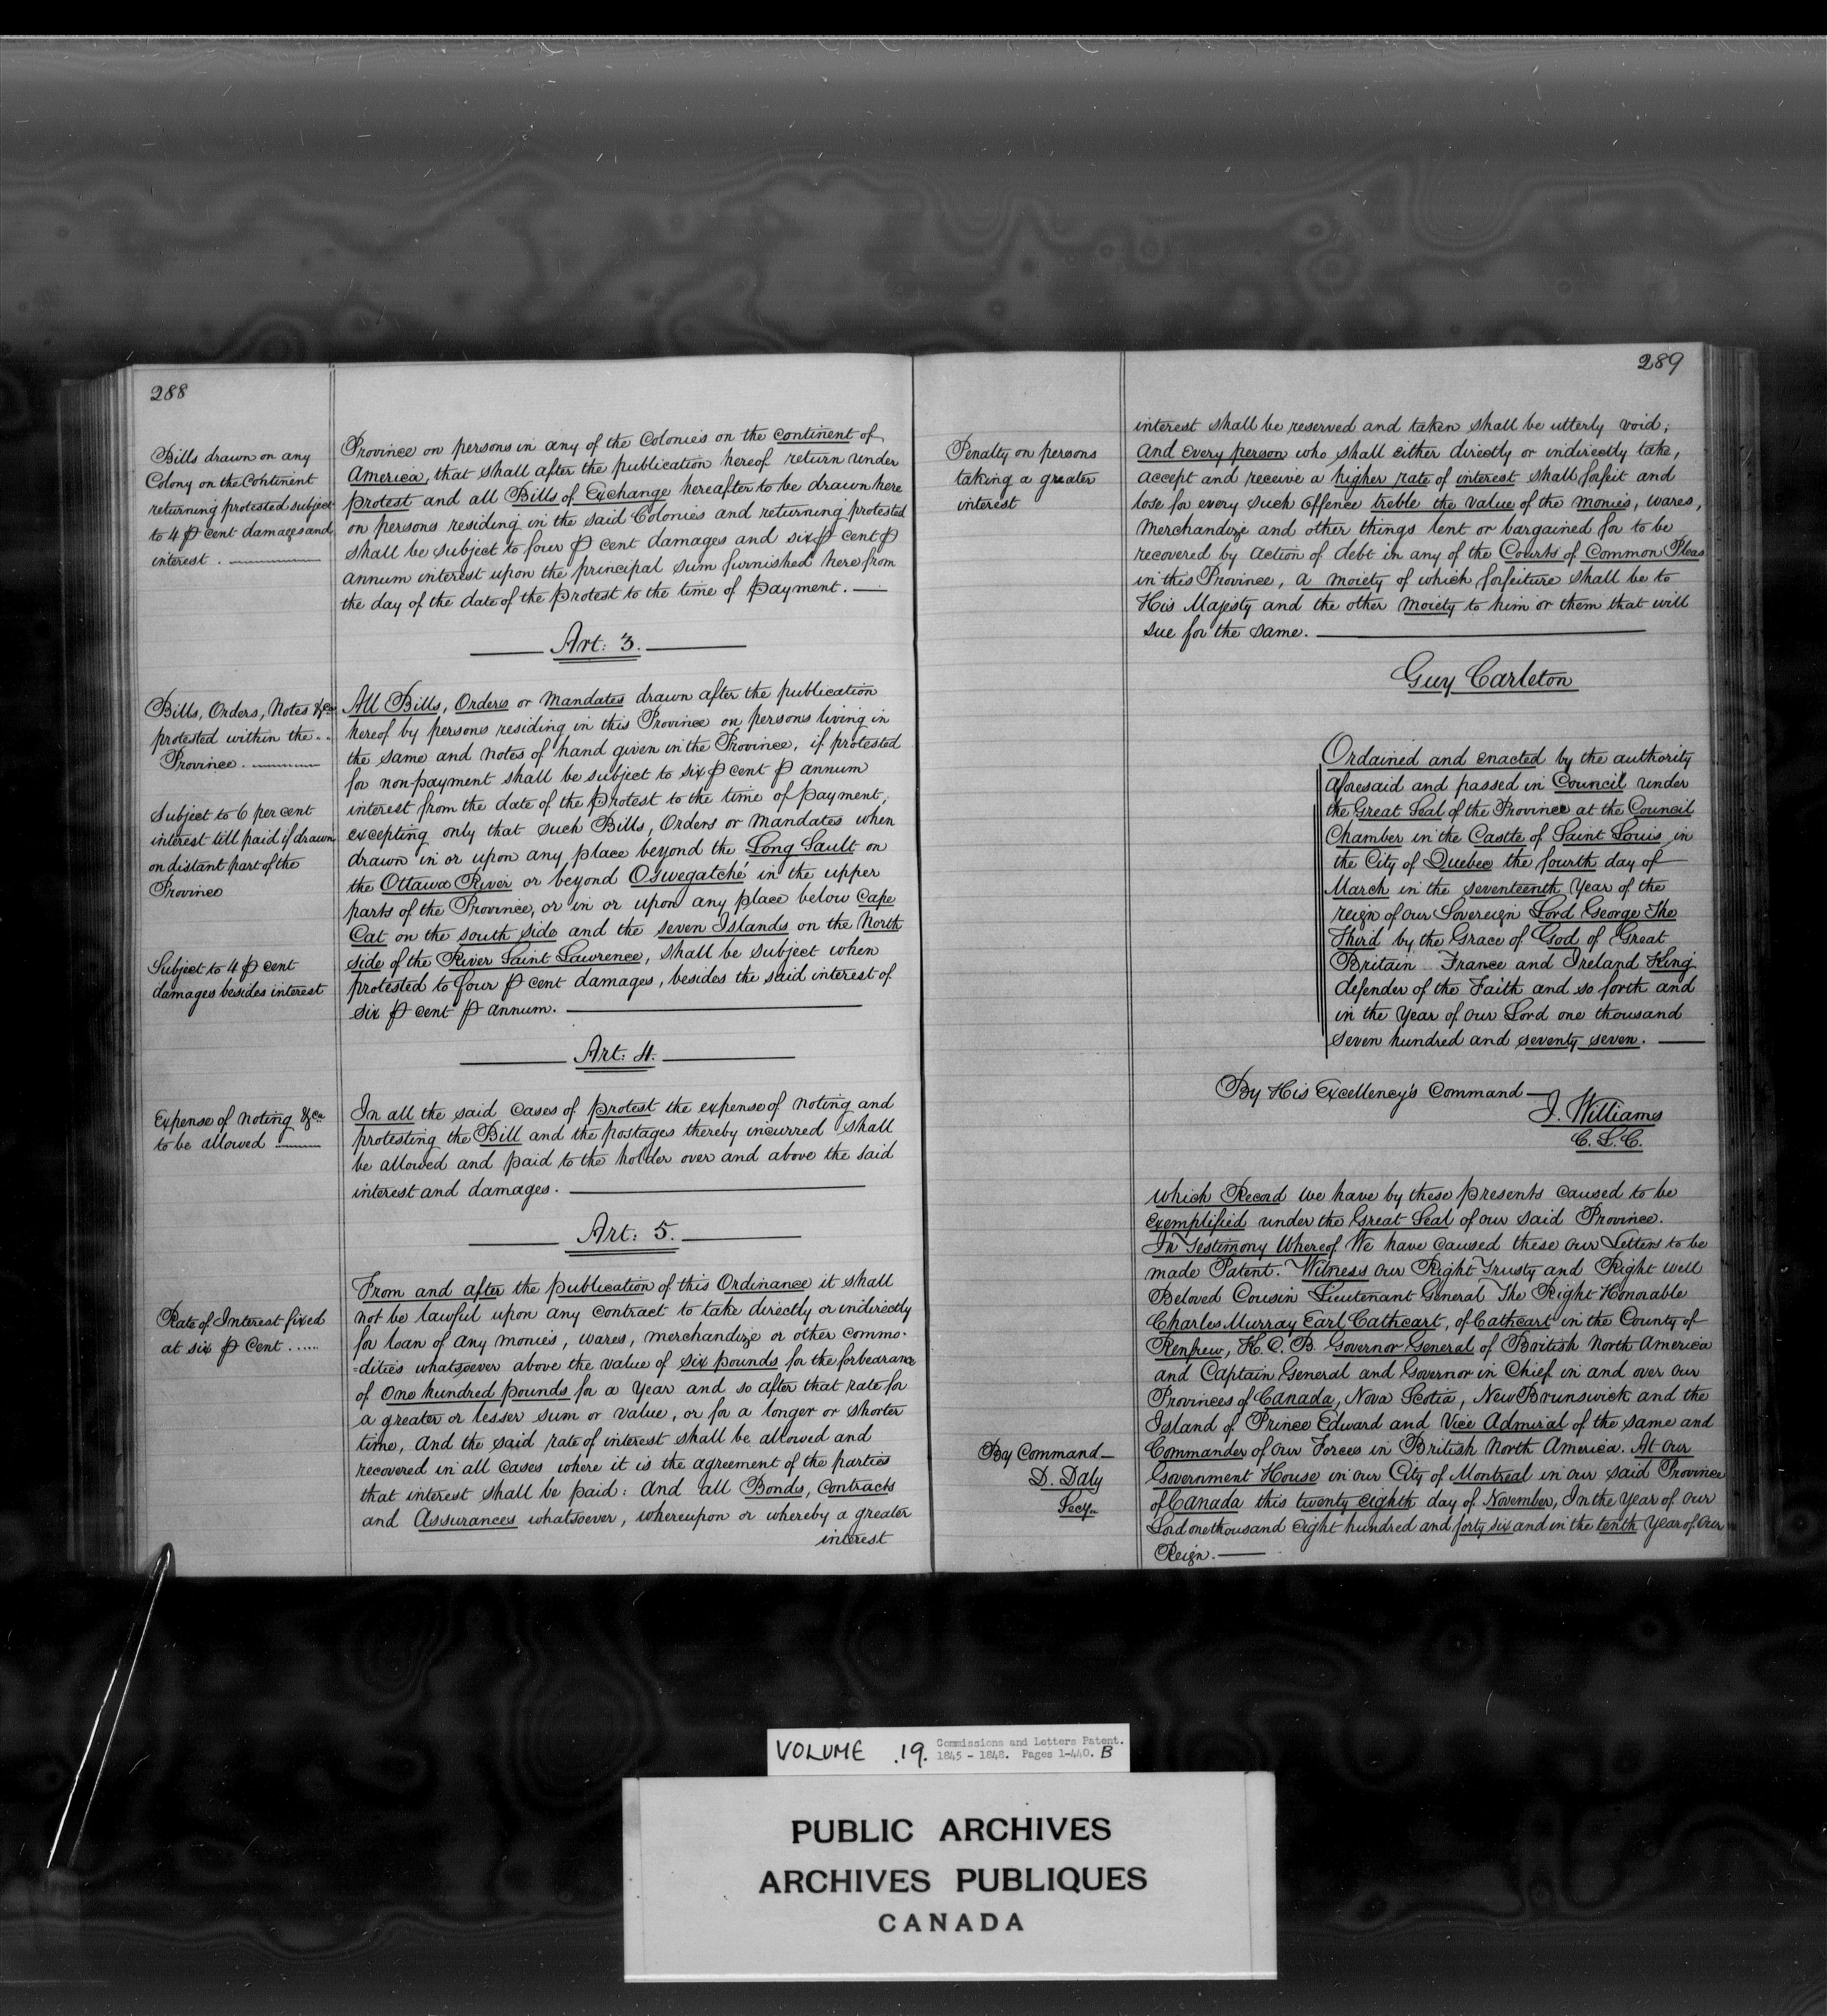 288
Bills drawn on any
Colony on the Continent
returning protested subject
to 4 ₱ cent damages and
interest .
Province on persons in any of the Colonies on the continent of
America, that shall after the publication hereof return under
protest and all Bills of Exchange hereafter to be drawn here
on persons residing in the said Colonies and returning protested
shall be subject to four ₱ cent damages and six ₱ cent ₱
annum interest upon the principal sum furnished here from
the day of the date of the Protest to the time of payment. —
Art: 3.
Bills, Orders, Notes &ca
protested within the..
Province.
Subject to 6 per cent
interest till paid if drawn
on distant part of the
Province
Subject to 4 ₱ cent
damages besides interest
All Bills, Orders or Mandates drawn after the publication
hereof by persons residing in this Province on persons living in
the same and notes of hand given in the Province, if protested
for non-payment shall be subject to six ₱ cent ₱ annum
interest from the date of the Protest to the time of payment;
excepting only that such Bills, Orders or Mandates when
drawn in or upon any place beyond the Long Sault on
the Ottawa River or beyond Oswegatché in the upper
parts of the Province, or in or upon any place below Cape
Cat on the south side and the seven Islands on the North
side of the River Saint Lawrence, shall be subject when
protested to four ₱ cent damages, besides the said interest of
six ₱ cent ₱ annum.
Art: 4.
Expense of noting &ca
to be allowed
In all the said cases of protest the expense of noting and
protesting the Bill and the postages thereby incurred shall
be allowed and paid to the holder over and above the said
interest and damages.
Art: 5.
Rate of Interest fixed
at six ₱ Cent ......
From and after the publication of this Ordinance it shall
not be lawful upon any contract to take directly or indirectly
for loan of any monies, wares, merchandize or other commo-
-dities whatsoever above the value of six pounds for the forbearance
of One hundred pounds for a year and so after that rate for
a greater or lesser sum or value, or for a longer or shorter
time, And the said rate of interest shall be allowed and
recovered in all cases where it is the agreement of the parties
that interest shall be paid: And all Bonds, Contracts
and Assurances whatsoever, whereupon or whereby a greater
interest
289
Penalty on persons
taking a greater
interest
interest shall be reserved and taken shall be utterly void;
And every person who shall either directly or indirectly take,
accept and receive a higher rate of interest shall forfeit and
lose for every such offence treble the value of the monies, wares,
Merchandize and other things lent or bargained for to be
recovered by action of debt in any of the Courts of Common Pleas
in this Province, a moiety of which forfeiture shall be to
His Majesty and the other moiety to him or them that will
sue for the same.
Guy Carleton
Ordained and enacted by the authority
aforesaid and passed in Council under
the Great Seal of the Province at the Council
Chamber in the Castle of Saint Louis in
the City of Quebec the fourth day of
March in the seventeenth Year of the
reign of our Sovereign Lord George The
Third by the Grace of God of Great
Britain France and Ireland King
defender of the Faith and so forth and
in the Year of our Lord one thousand
seven hundred and seventy seven.
By His Excellency's Command —
J. Williams
C. L. C.
Which Record We have by these presents caused to be
exemplified under the Great Seal of our said Province.
In Testimony Whereof We have caused these our Letters to be
made Patent. Witness our Right Trusty and Right Well
Beloved Cousin Lieutenant General The Right Honorable
Charles Murray Earl Cathcart, of Cathcart in the County of
Renfrew, K. C. B. Governor General of British North America
and Captain General and Governor in Chief in and over our
Provinces of Canada, Nova Scotia, New Brunswick and the
Island of Prince Edward and Vice Admiral of the same and
Commander of our Forces in British North America. At our
Government House in our City of Montreal in our said Province
of Canada this twenty eighth day of November, In the Year of our
Lord one thousand eight hundred and forty six and in the tenth Year of Our
Reign. —
By Command —
D. Daly
Secy..
VOLUME .19. Commissions and Letters Patent.
1845 - 1848. Pages 1-440. B
PUBLIC ARCHIVES
ARCHIVES PUBLIQUES
CANADA